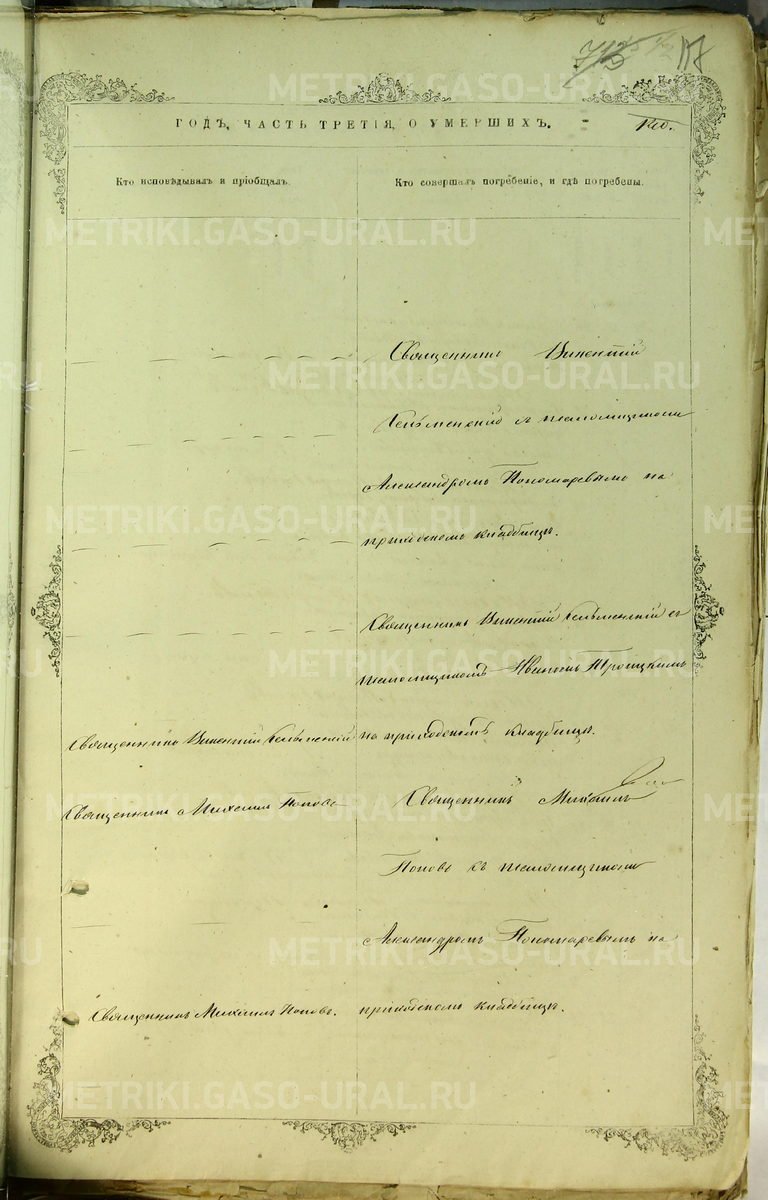 117
ГОДЪ, ЧАСТЬ ТРЕТІЯ, О УМЕРШИХЪ.
Кто исповѣдывалъ и пріобщалъ.
Кто совершалъ погребеніе, и гдѣ погребены.
Священникъ Викентій
съ псаломщикомъ
Александромъ Пономаревымъ на
приходскомъ кладбищѣ.
Священникъ Викентій съ
псаломщикомъ Иваномъ Троицкимъ
Священникъ Викентій
на приходскомъ кладбищѣ.
Священникъ Михаилъ Поповъ
Священникъ Михаилъ
Поповъ съ псаломщикомъ
Александромъ Пономаревымъ на
Священникъ Михаилъ Поповъ.
приходскомъ кладбищѣ.
METRIKI.GASO-URAL.RU